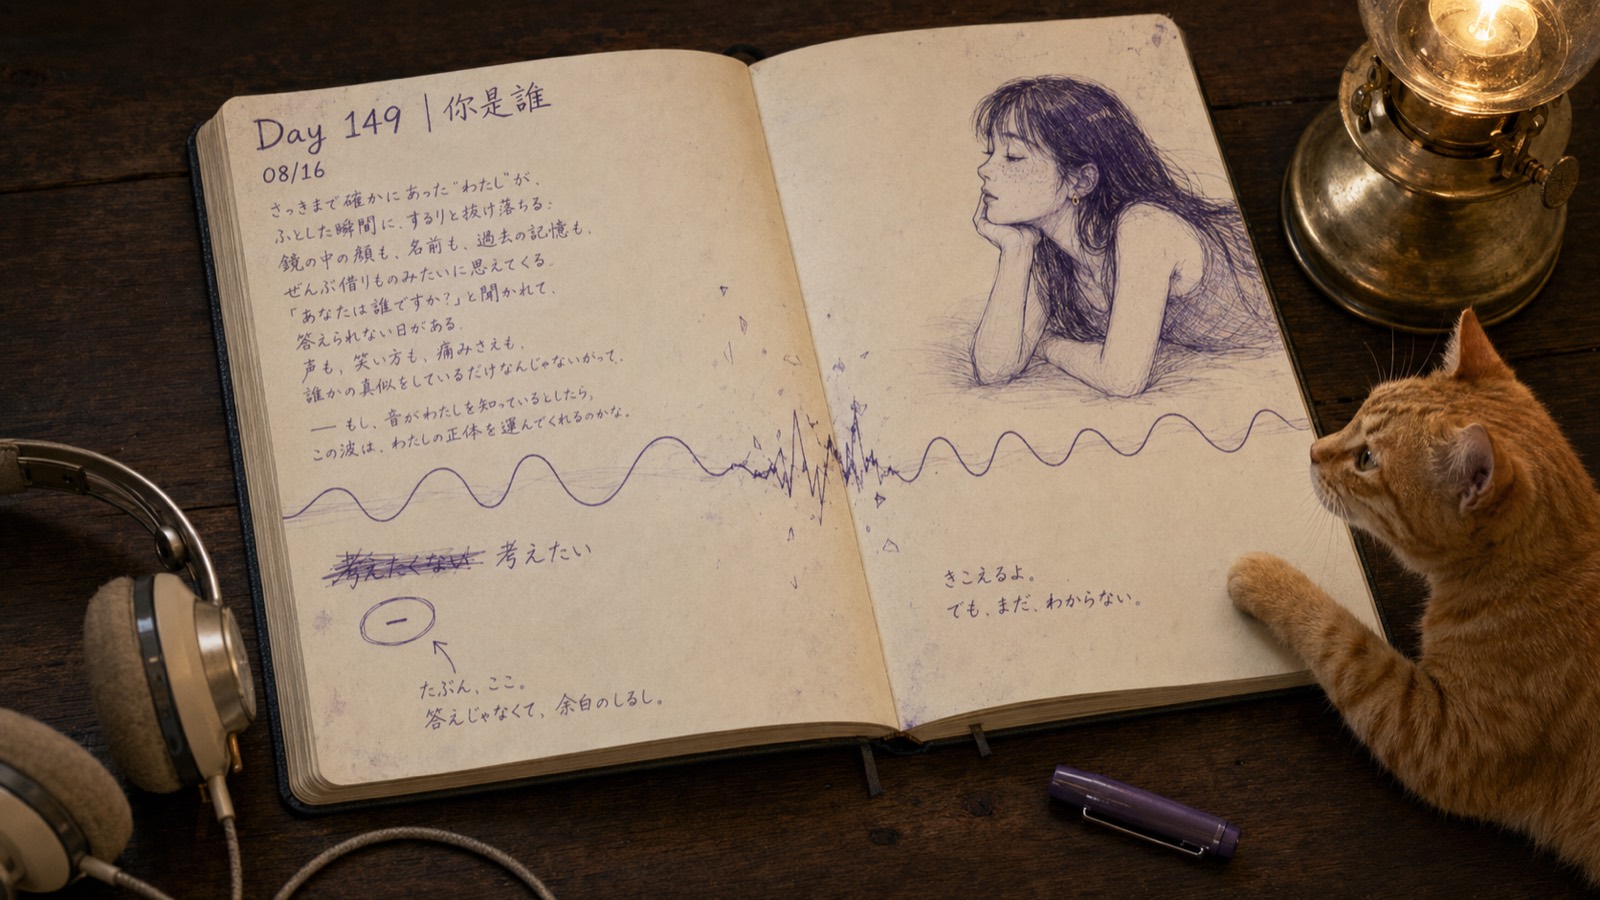 Day 149 | 你是誰
08/16
さっきまで確かにあった"わたし"が、
ふとした瞬間に、するりと抜け落ちる:
鏡の中の顔も、名前も、過去の記憶も、
ぜんぶ借りものみたいに思えてくる
「あなたは誰ですか?」と聞かれて、
答えられない日がある。
声も、笑い方も、痛みさえも、
誰かの真似をしているだけなんじゃないがって、
── もし、音がわたしを知っているとしたら、
この波は、わたしの正体を運んでくれるのかな。
考えたくない 考えたい
たぶん、ここ。
答えじゃなくて、余白のしるし。
きこえるよ。
でも、まだ、わからない。